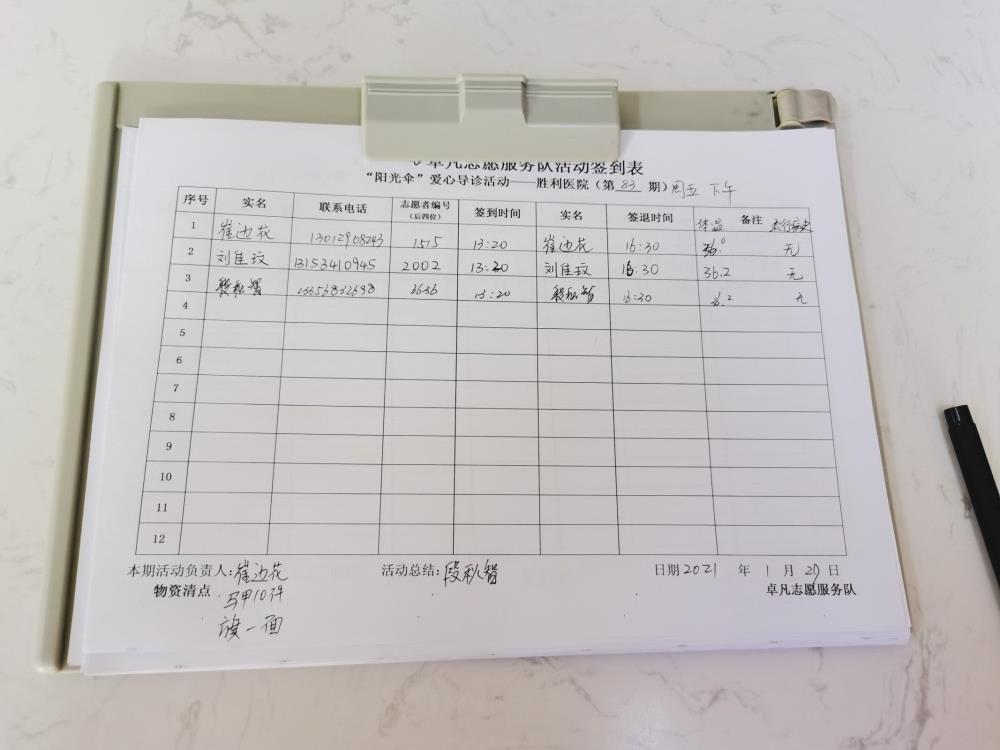 卓凡志愿服务队活动签到表
“阳光伞”爱心导诊活动——胜利医院（第 83 期）周五 下午
序号 实名 联系电话 志愿者编号（后四位） 签到时间 实名 签退时间 体温 备注 流行病史
1 崔边花 13012908243 1515 13:20 崔边花 16:30 36.0 无
2 刘佳玟 13153410945 2002 13:20 刘佳玟 16:30 36.2 无
3 段秋智 3636 13:20 段秋智 16:30 无
4
5
6
7
8
9
10
11
12
本期活动负责人：崔边花 活动总结：段秋智 日期 2021 年 1 月 日
物资清点 马甲10件 卓凡志愿服务队
旗一面